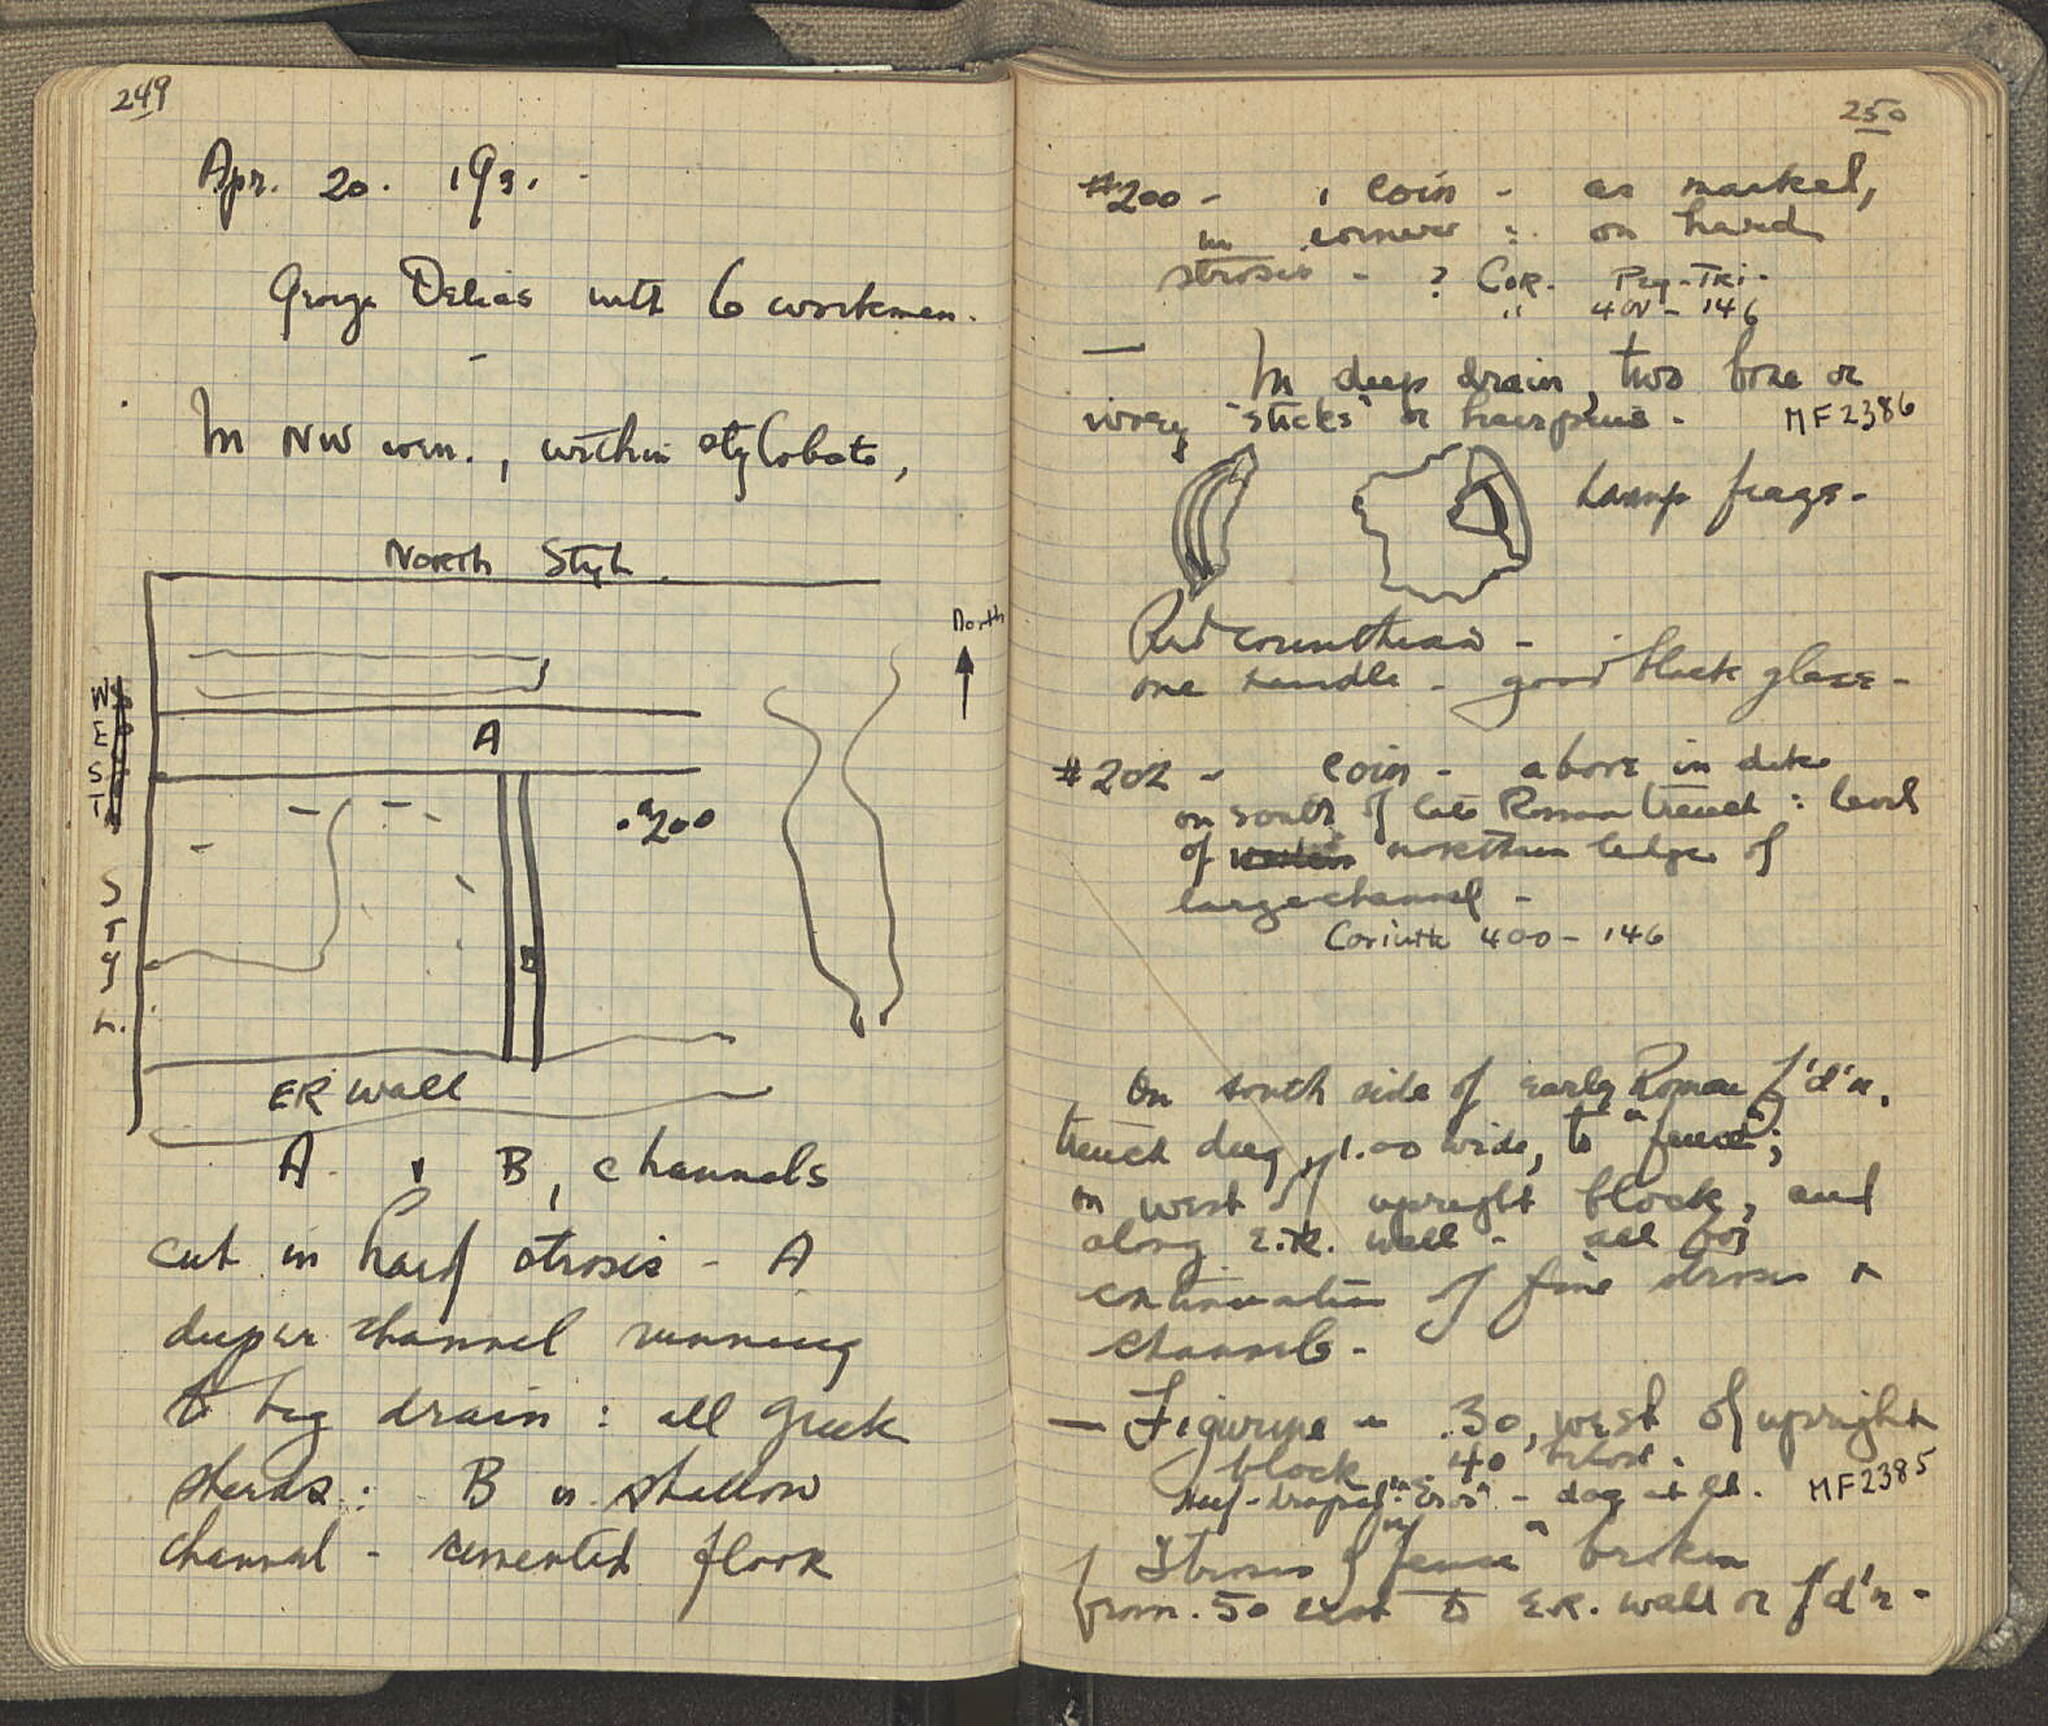 249
Apr. 20. 193.
George Delias with 6 workmen.
-
In NW corn., within stylobate,
North Styl.
North
WEST
STYL.
A
#200
ER wall
A. & B, channels
cut in hard strosis - A
deeper channel running
to big drain : all Greek
sherds : B is shallow
channel - cemented floor
250
#200 - 1 coin - as marked,
in corner : on hard
strosis - ? COR. Peg-Tri-
" 400 - 146
— In deep drain, two bone or
ivory "sticks" or hairpins - MF2386
Lamp frags -
Red Corinthian -
one handle - good black glaze -
#202 - coin - above in
on south of late Roman trench : level
of northern ledge of
large channel -
Corinth 400 - 146
On south side of early Roman f'd'n,
trench deep, 1.00 wide, to "fence";
on west of upright block, and
along E.R. wall - all for
continuation of fine strosis &
channels -
— Figurine - .30, west of upright
block .40 below.
half-draped "Eros" - dog at lt. MF2385
Strosis of "fence" broken
from .50 east to E.R. wall or f'd'n -